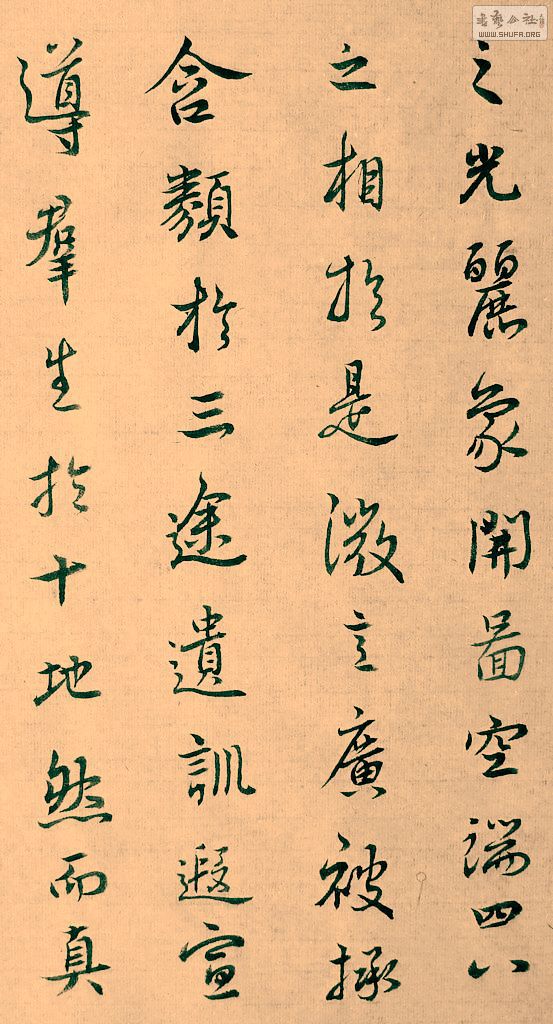 之光麗象開啚空端四八
之相扵是微言廣被拯
含類扵三途遺訓遐宣
導羣生扵十地然而真
書藝公社
WWW.SHUFA.ORG